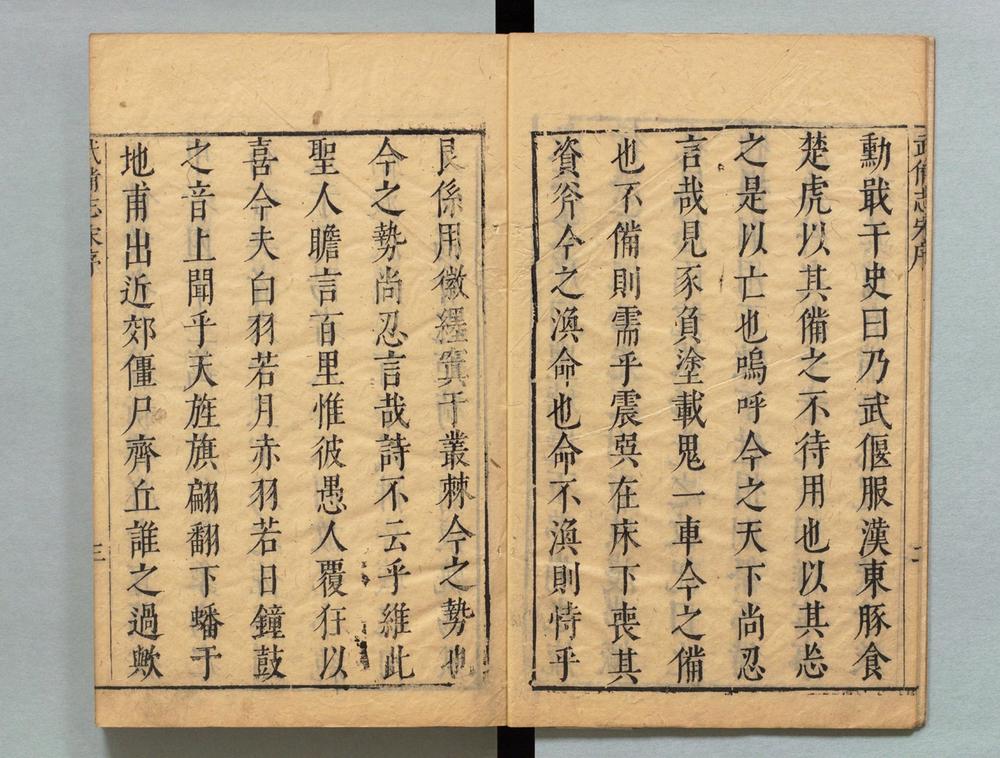 武備志宋序 二
勳戢干史曰乃武偃服漢東豚食
楚虎以其備之不待用也以其忘
之是以亡也嗚呼今之天下尚忍
言哉見豕負塗載鬼一車今之備
也不備則需乎震巽在床下喪其
資斧今之渙命也命不渙則恃乎
艮係用徽纆寘于叢棘今之勢也
今之勢尚忍言哉詩不云乎維此
聖人瞻言百里惟彼愚人覆狂以
喜今夫白羽若月赤羽若日鐘鼓
之音上聞乎天旌旗翩翻下蟠于
地甫出近郊僵尸齊丘誰之過歟
武備志宋序 三